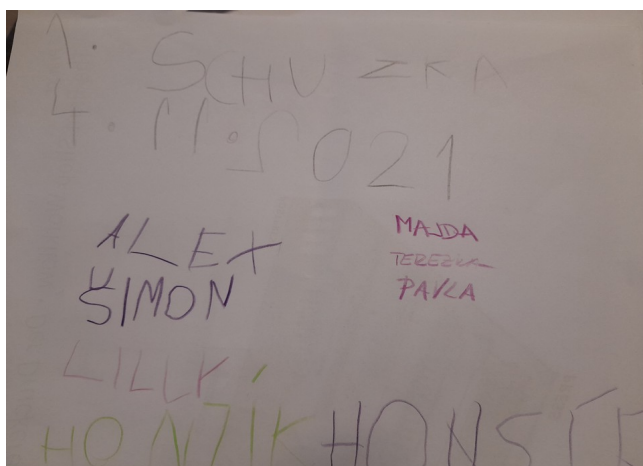 1. SCHUZKA
4. 11. 2021
ALEX
ŠIMON
MAJDA
TEREZKA
PAVLA
LILLY
HONZÍK